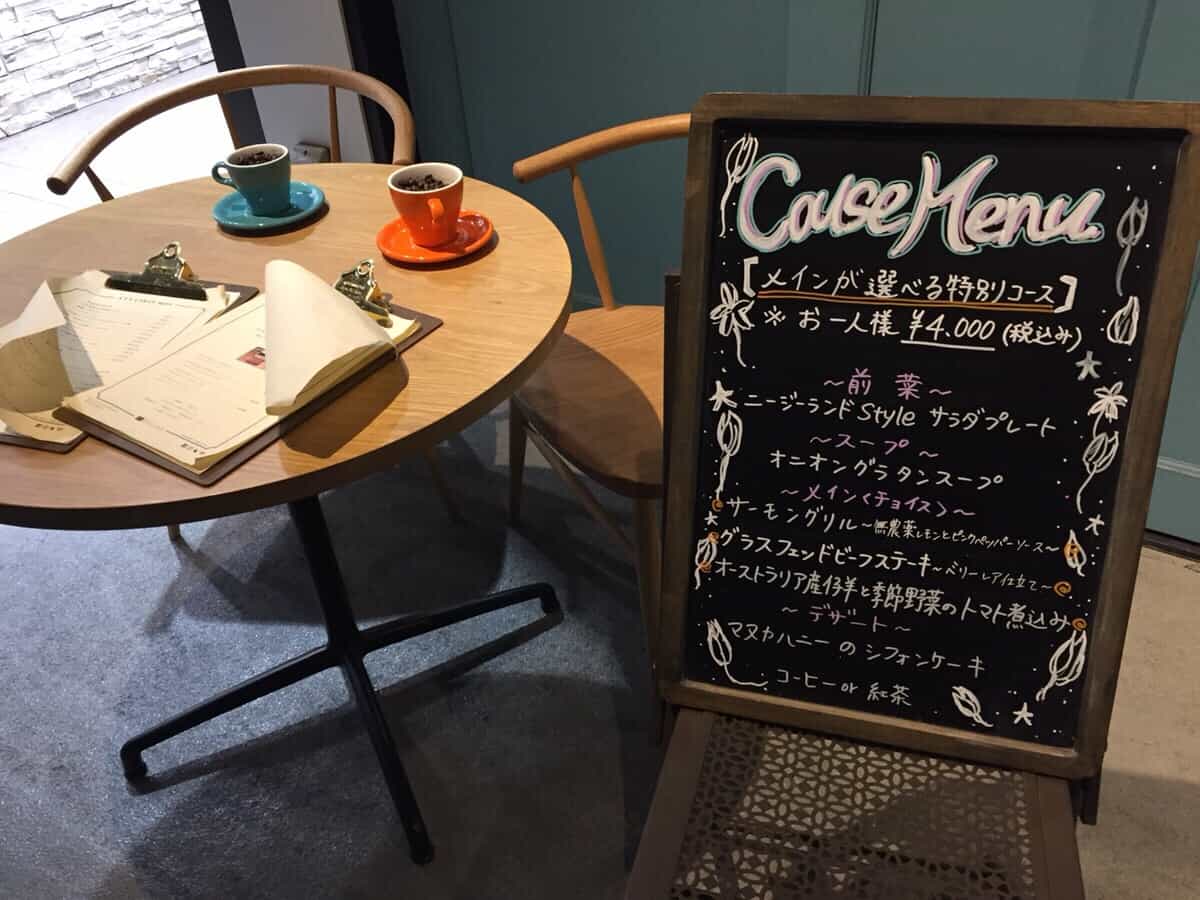 Couse Menu
[メインが選べる特別コース]
※お一人様 ¥4.000 (税込み)
～前葉～
ニージーランドStyle サラダプレート
～スープ～
オニオングラタンスープ
～メイン〈チョイス〉～
サーモングリル～無農薬レモンとピンクペッパーソース～
グラスフェンドビーフステーキ～ベリーレア仕立て～
オーストラリア産仔羊と季節野菜のトマト煮込み
～デザート～
マヌカハニーのシフォンケーキ
コーヒーor紅茶